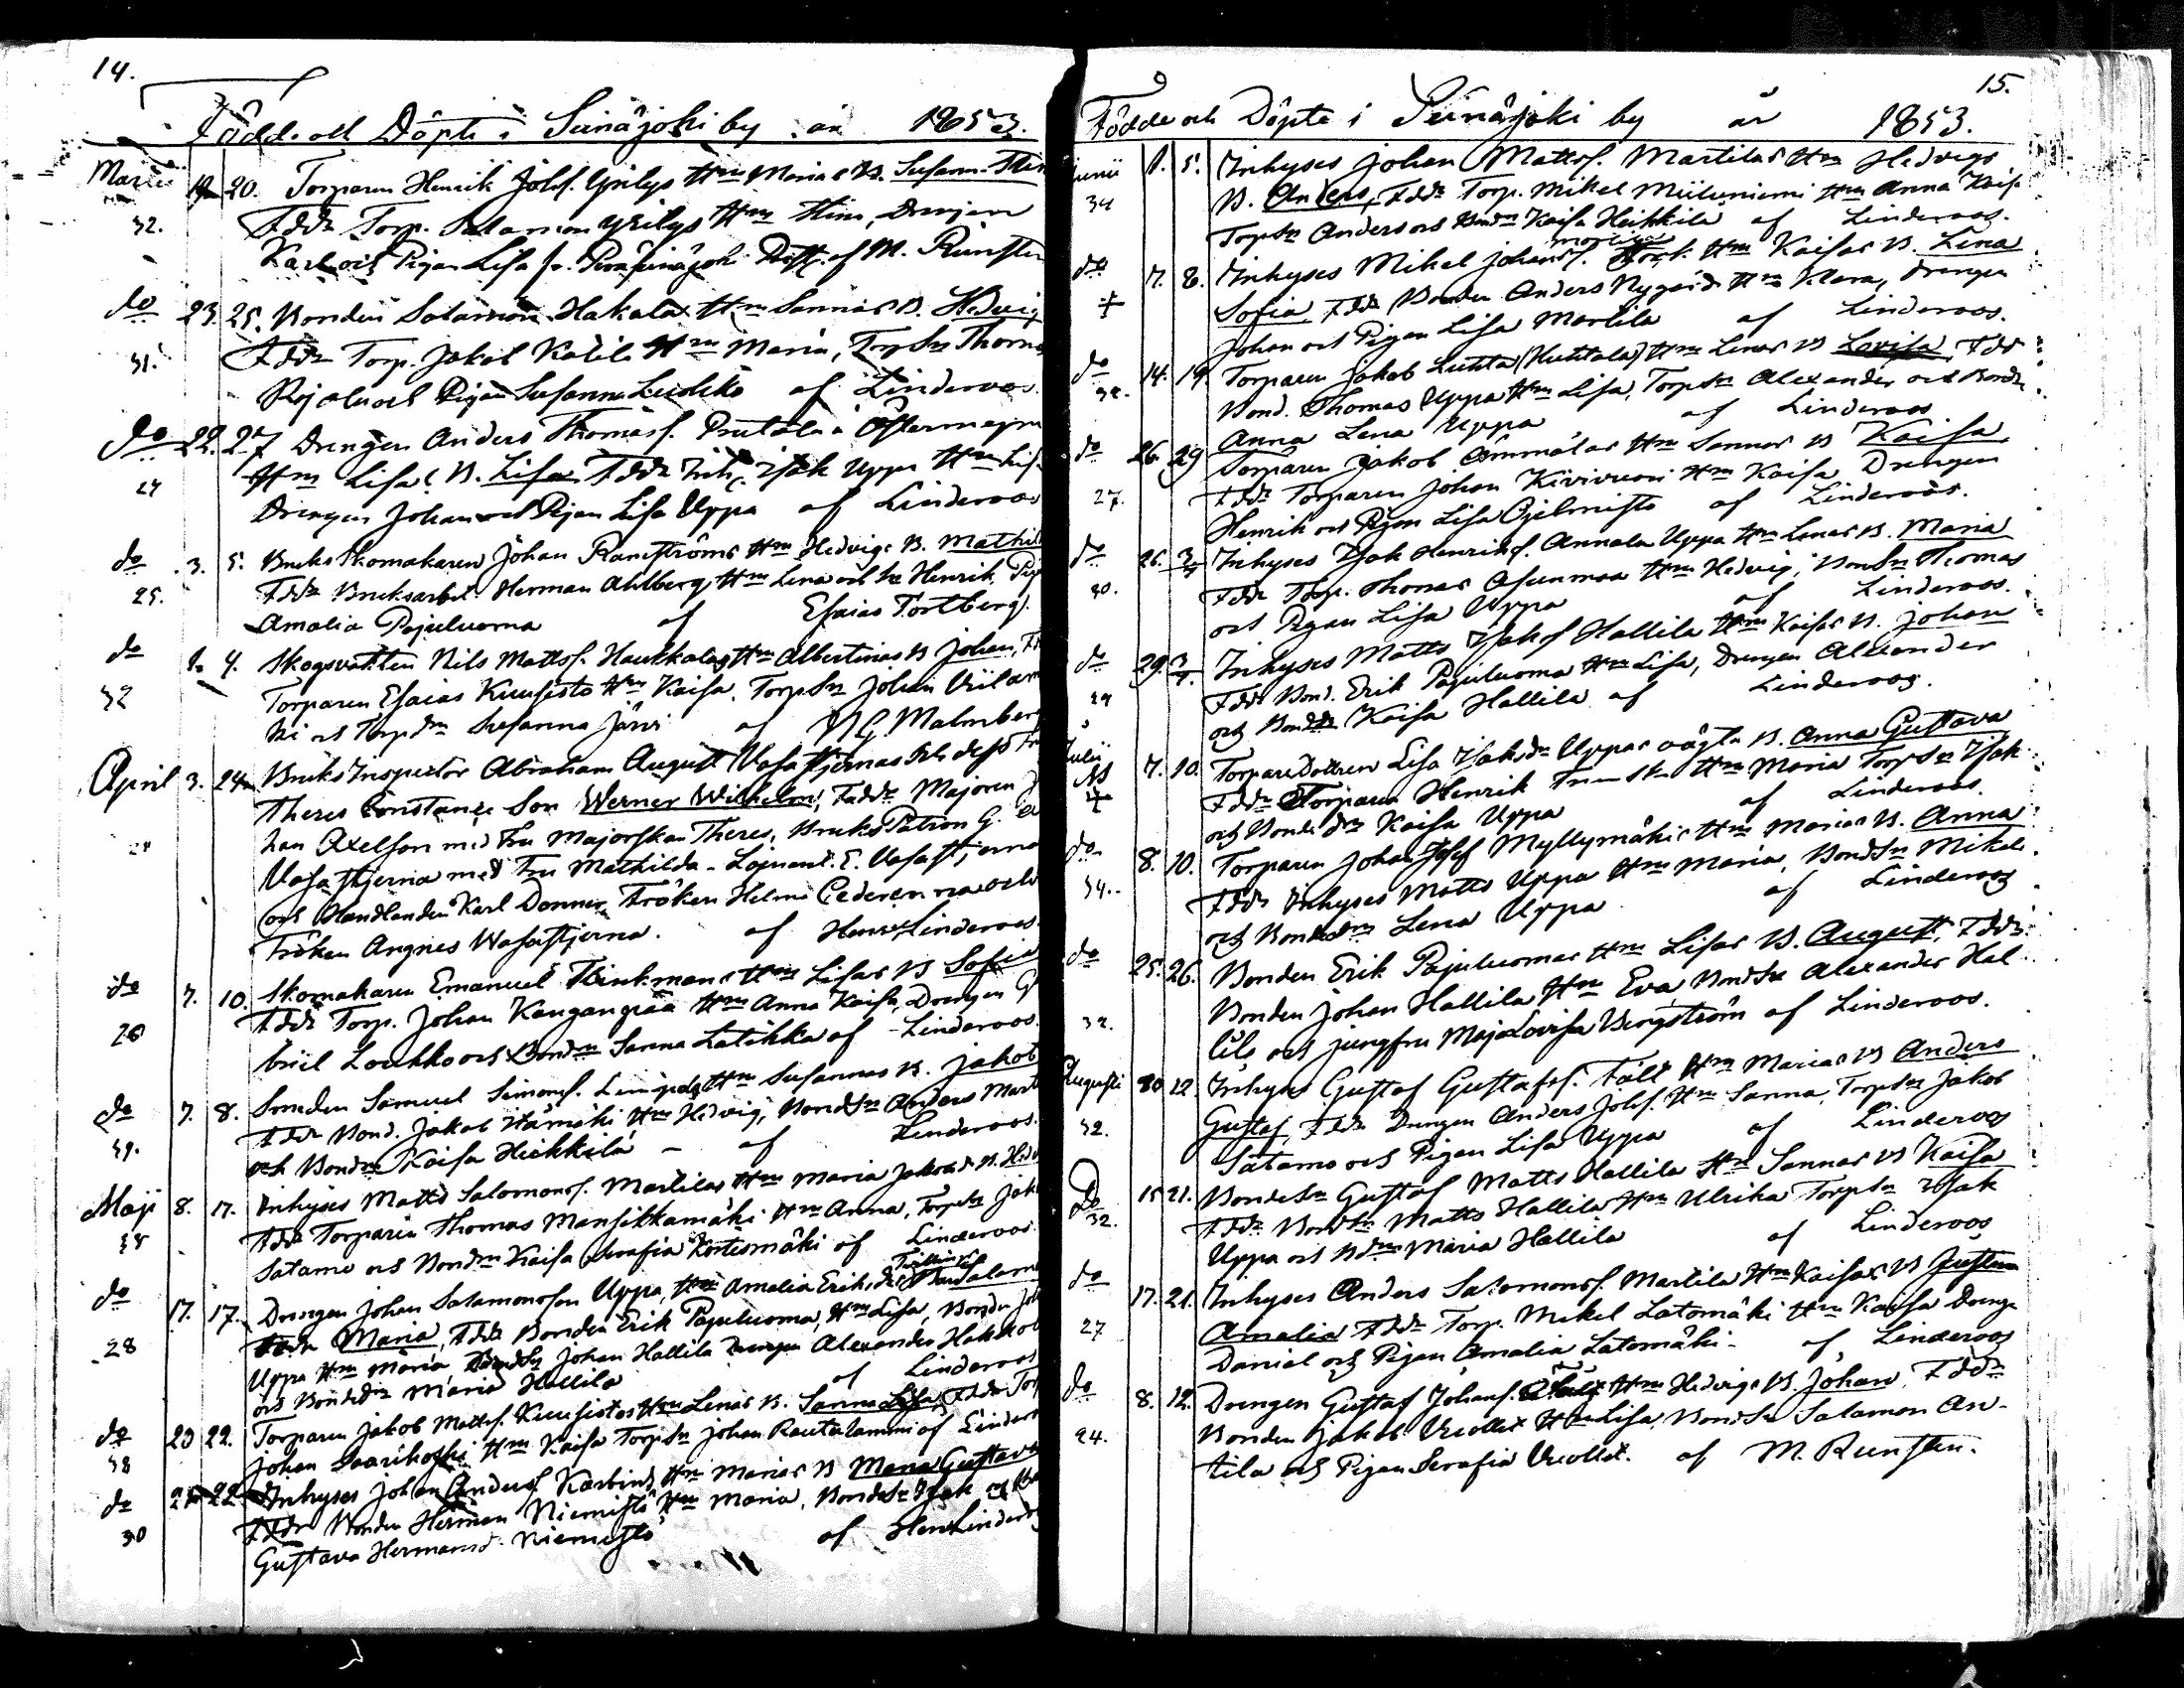 14.
Född. och Döpte i Seinäjoki by år 1853.
Martii 19 20. Torparen Henrik Johs. Yrilys Hm Marias B. Susann
32. Fddr Torp. Salamon Yrilys Hm Stina, Drengen
Karl och Pigan Lisa fr. Peräseinäjoki af M. Runsten
do 23 25. Bonden Salamon Hakalas Hm Sannas B. Hedvig
31. Fddr Torp. Jakob Katila Hm Maria, TorpSn Thomas
och Pigan Susanna af Linderoos.
do 22. 27 Drengen Anders Thomass. Östermyra
24 Hm Lisas B. Lisa Fddr Inh. Isak Uppa Hm Lisa
Drengen Johan och Pigan Lisa Uppa af Linderoos
do 3. 5. Bruks Skomakaren Johan Ramströms Hm Hedvigs B. Mathil
25. Fddr Bruksarbet. Herman Ahlberg Hm Lena och Sn Henrik, Pig
Amalia Pajuluoma af Esaias Tortberg.
do 1. 4. Skogsvakten Nils Mattss. Haukkalas Hm Albertinas B Johan, Fd
32 Torparen Esaias Kuusisto Hm Kaisa, TorpSn Johan Viilar
ni och Torpdm Susanna Järvi af N G Malmberg
April 3. 24 Bruks Inspector Abraham August Vasastjernas och dess Fru
Theres Constance Son Werner Wilhelm, Faddr Majoren J
28 han Axelson med Fru Majorskan Theres, Bruks Patron G. A
Vasastjerna med Fru Mathilda - Löjnant. E. Vasastjerna
och Handlanden Karl Donner, Fröken Helmi Cederen och
Fröken Angnes Wasastjerna. af Henr. Linderoos.
do 7. 10. Skomakaren Emanuel Brinkmans Hm Lisas B Sofia
26 Fddr Torp. Johan Kangangrää Hm Anna Kaisa, Drengen G
briel Loukko och Bondm Sanna Latikka af Linderoos.
do 7. 8. Smeden Samuel Simons. Hm Susannas B. Jakob
39. Fddr Bond. Jakob Hämäki Hm Hedvig, BondSn Anders Mart
och Bondm Kaisa Heikkilä - af Linderoos.
Maji 8. 17. Inhyses Matts Salomons. Martilas Hm Maria Jakobsd. B. Hedv
38 Fddr Torparen Thomas Mansikkamäki Hm Anna, TorpSn Jak
Satamo och Bondm Kaisa Serafia Kortesmäki af Linderoos
do 17. 17. Drengen Johan Salamonsson Uppa, Hm Amalia Eriksd. Salam
28 Maria, Fddr Bonden Erik Pajuluoma, Hm Lisa, Bonden Joh
Uppa Hm Maria BondSn Johan Hallila Drengen Alexander Hakkol
och Bondedm Maria Hallila af Linderoos
do 20 22. Torparen Jakob Mattss. Kuusistos Hm Lenas B. Sanna Lisa, Fddr Torp
38 Johan Saarikoski Hm Kaisa TorpSn Johan Rautalammi af Linder
do 21 22 Inhyses Johan Anderss. Karbins Hm Marias B Maria Gustava
30 Fddr Bonden Herman Niemistö Hm Maria, BondeSn Isak och
Gustava Hermansd. Niemistö af Henr. Linderoos
15.
Födde och Döpte i Seinäjoki by år 1853.
Junii 1. 5. Inhyses Johan Mattss. Martilas Hm Hedvigs
34 B. Anders, Fddr Torp. Mikel Miiluniemi Hm Anna Kais.
TorpSn Anders och Bondm Kaisa Heikkilä af Linderoos.
do 7. 8. Inhyses Mikel Johans. Hm Kaisas B. Lena
+ Sofia, Fddr Bonden Anders Nygård Hm Klara, Drengen
Johan och Pigan Lisa Martila af Linderoos.
do 14. 19. Torparen Jakob Luhta (Huhtala) Hm Lenas B Lovisa, Fddr
32. Bond. Thomas Uppa Hm Lisa, TorpSn Alexander och Bondm
Anna Lena Uppa af Linderoos
do 26. 29 Torparen Jakob Ämmälas Hm Sannas B Kaisa,
27. Fddr Torparen Johan Kivivuori Hm Kaisa Drengen
Henrik och Pigan Lisa Ojelmisto af Linderoos.
do 26. 3/7 Inhyses Isak Henrikss. Annala Uppa Hm Lenas B. Maria
30. Fddr Torp. Thomas Asunmaa Hm Hedvig, BondSn Thomas
och Pigan Lisa Uppa af Linderoos.
do 29. 3/7. Inhyses Matts Isaks. Hallila Hm Kaisas B. Johan
29 Fddr Bond. Erik Pajuluoma Hm Lisa, Drengen Alexander
och Bonddr Kaisa Hallila af Linderoos.
Julii 7. 10. TorpareDottren Lisa Isaksdr Uppas oägta B. Anna Gustava
+ Fddr Torparen Henrik Hm Maria TorpSn Isak
och Bondedm Kaisa Uppa af Linderoos.
do 8. 10. Torparen Johan Josef Myllymäkis Hm Marias B. Anna
34. Fddr Inhyses Matts Uppa Hm Maria, BondSn Mikel
och Bondedm Lena Uppa af Linderoos
do 25. 26. Bonden Erik Pajuluomas Hm Lisas B. August, Fddr
32. Bonden Johan Hallila Hm Eva BondSn Alexander Hal
lila och jungfru Maja Lovisa Bergström af Linderoos.
Augusti 10. 12. Inhyses Gustaf Gustafss. Fält Hm Marias B Anders
32. Gustaf, Fddr Drengen Anders Johs. Hm Sanna, TorpSn Jakob
Satamo och Pigan Lisa Uppa af Linderoos
Do 15 21. BondeSn Gustaf Matts Hallila Hm Sannas B Kaisa
32. Fddr BondSn Matts Hallila Hm Ulrika TorpSn Isak
Uppa och Bdm Maria Hallila af Linderoos
do 17. 21. Inhyses Anders Salomons. Martila Hm Kaisas B Justina
27 Amalia Fddr Torp. Mikel Latomäki Hm Kaisa Drenge
Daniel och Pigan Amalia Latomäki - af Linderoos
do 8. 12. Drengen Gustaf Johans. Hm Hedvigs B. Johan Fddr
24. Bonden Jakob Vuollet Hm Lisa, BondSn Salamon An-
tila och Pigan Serafia Vuollet. af M. Runsten.